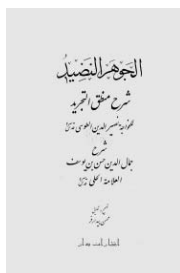 الجوهر النضيد
شرح منطق التجريد
للخواجه نصير الدين الطوسي
شرح
جمال الدين حسن بن يوسف
العلامة الحلي
انتشارات بيدار